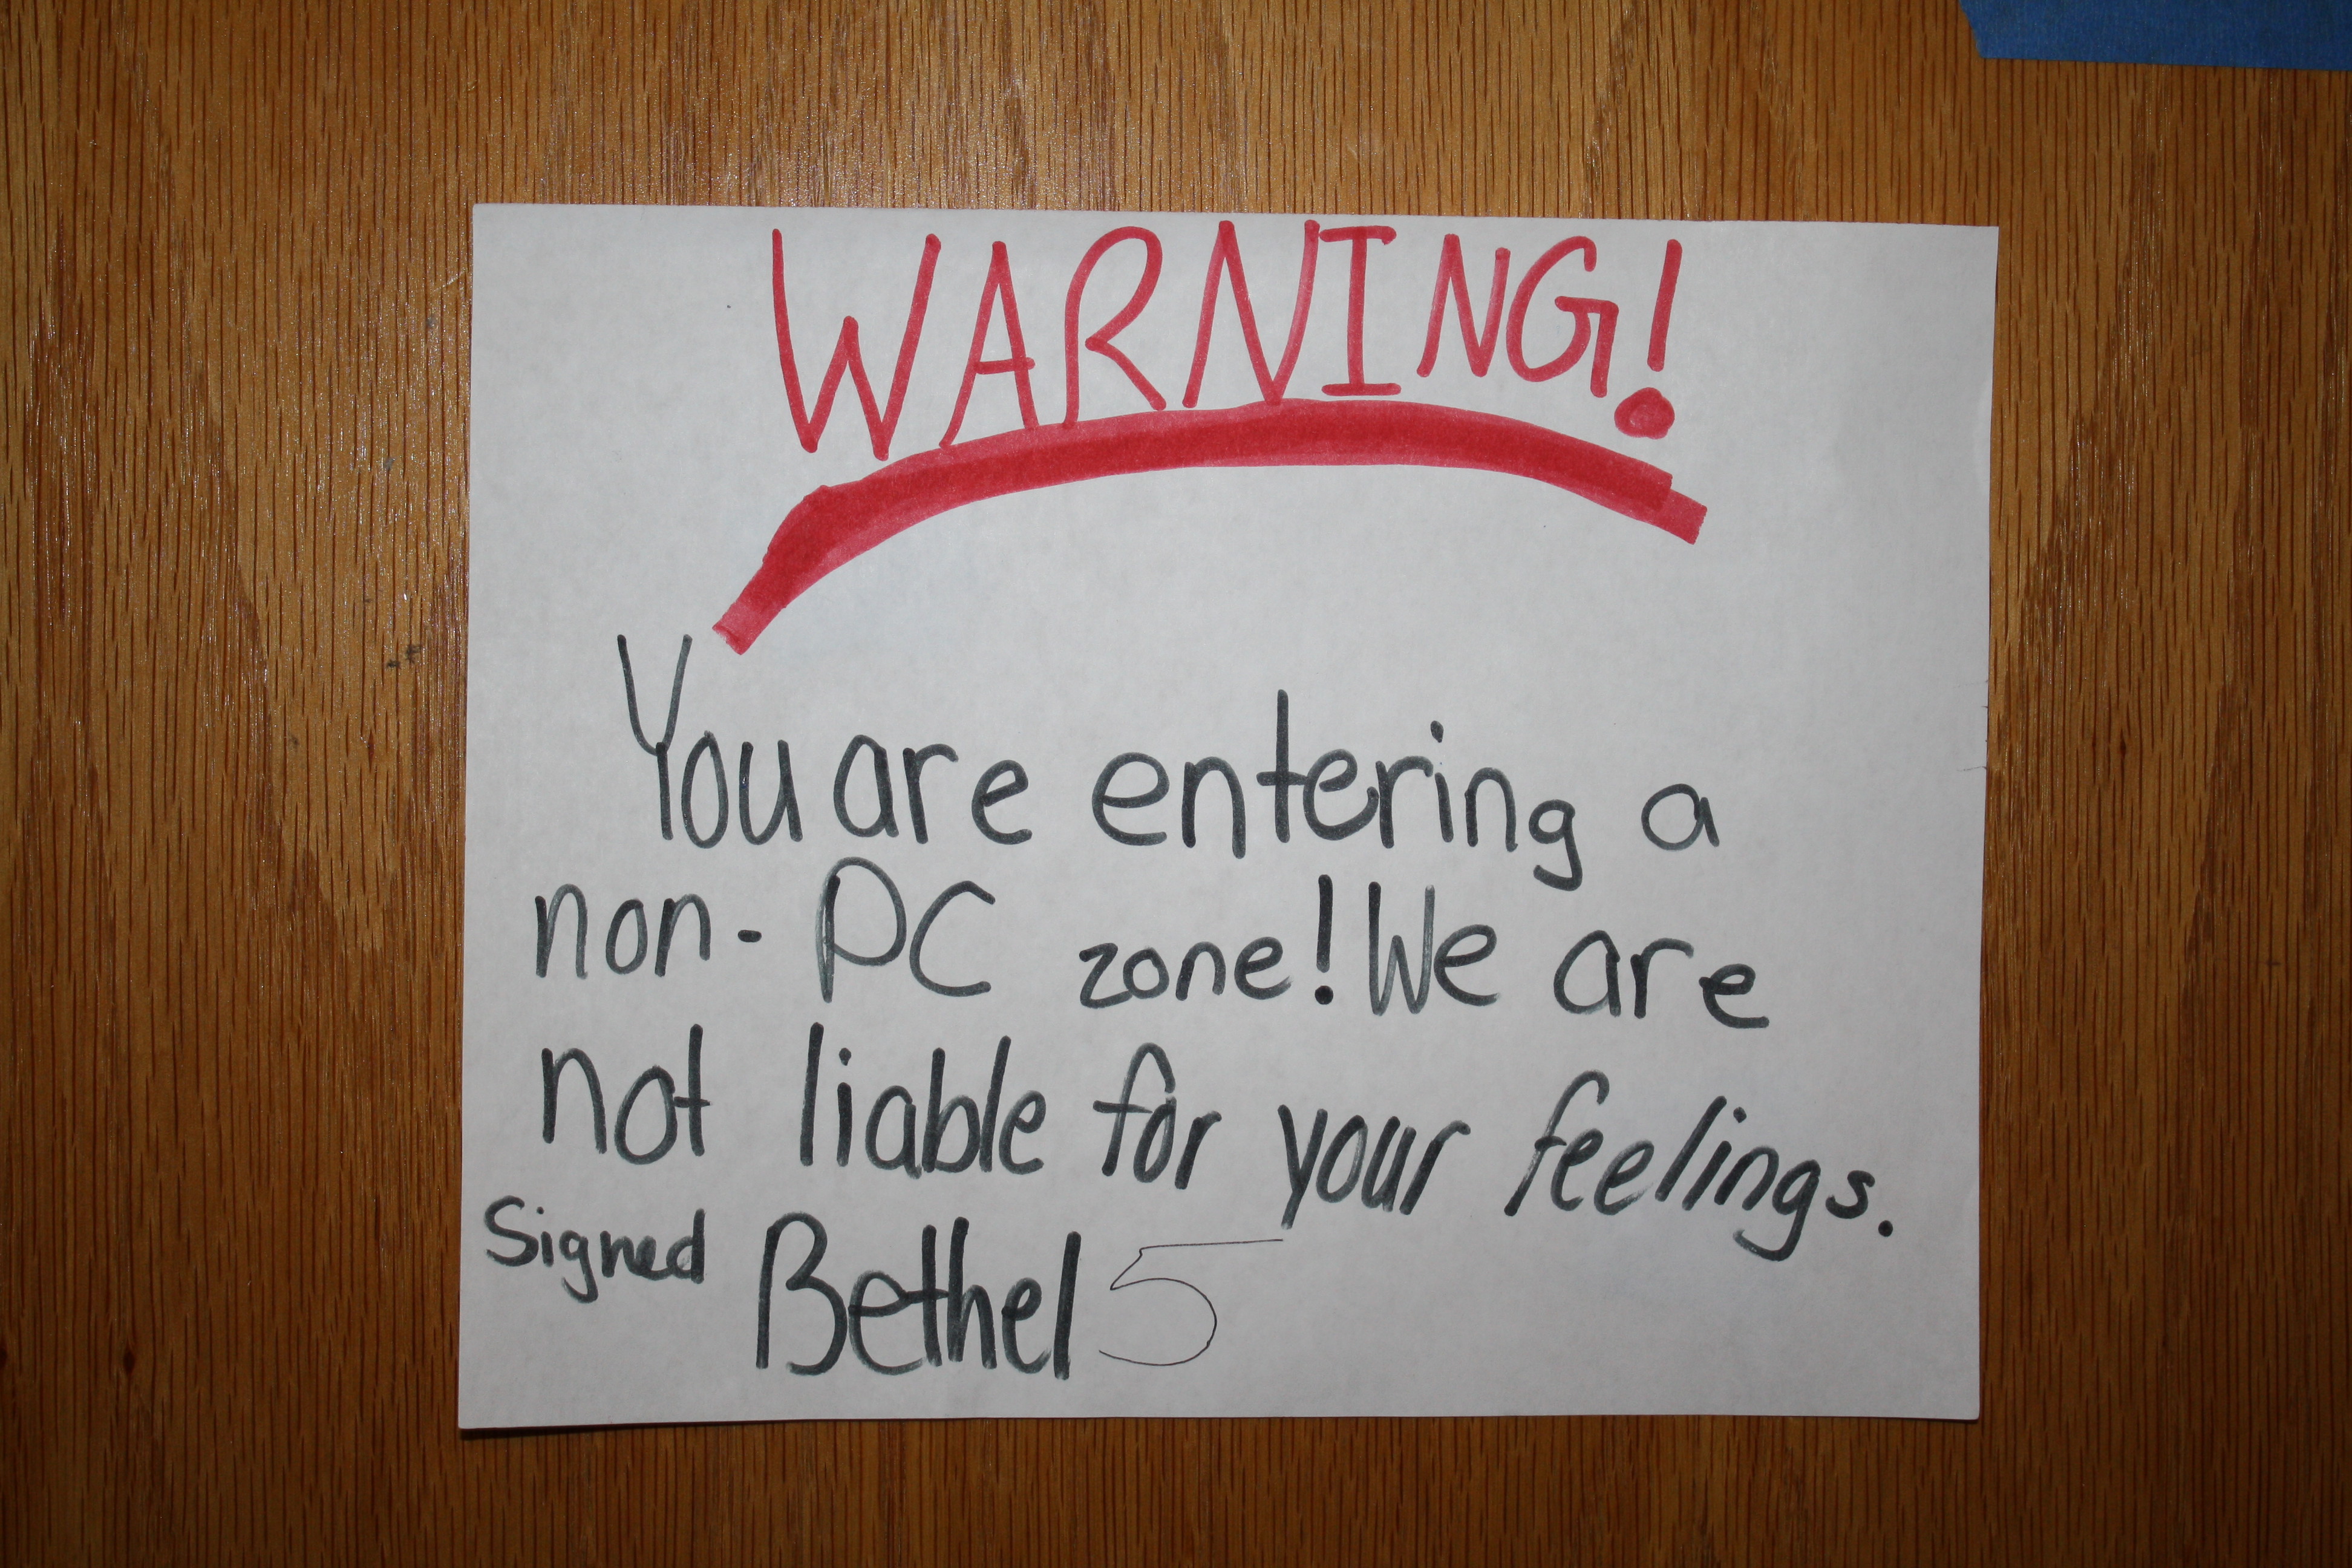 WARNING!
You are entering a
non-PC zone! We are
not liable for your feelings.
Signed Bethel 5